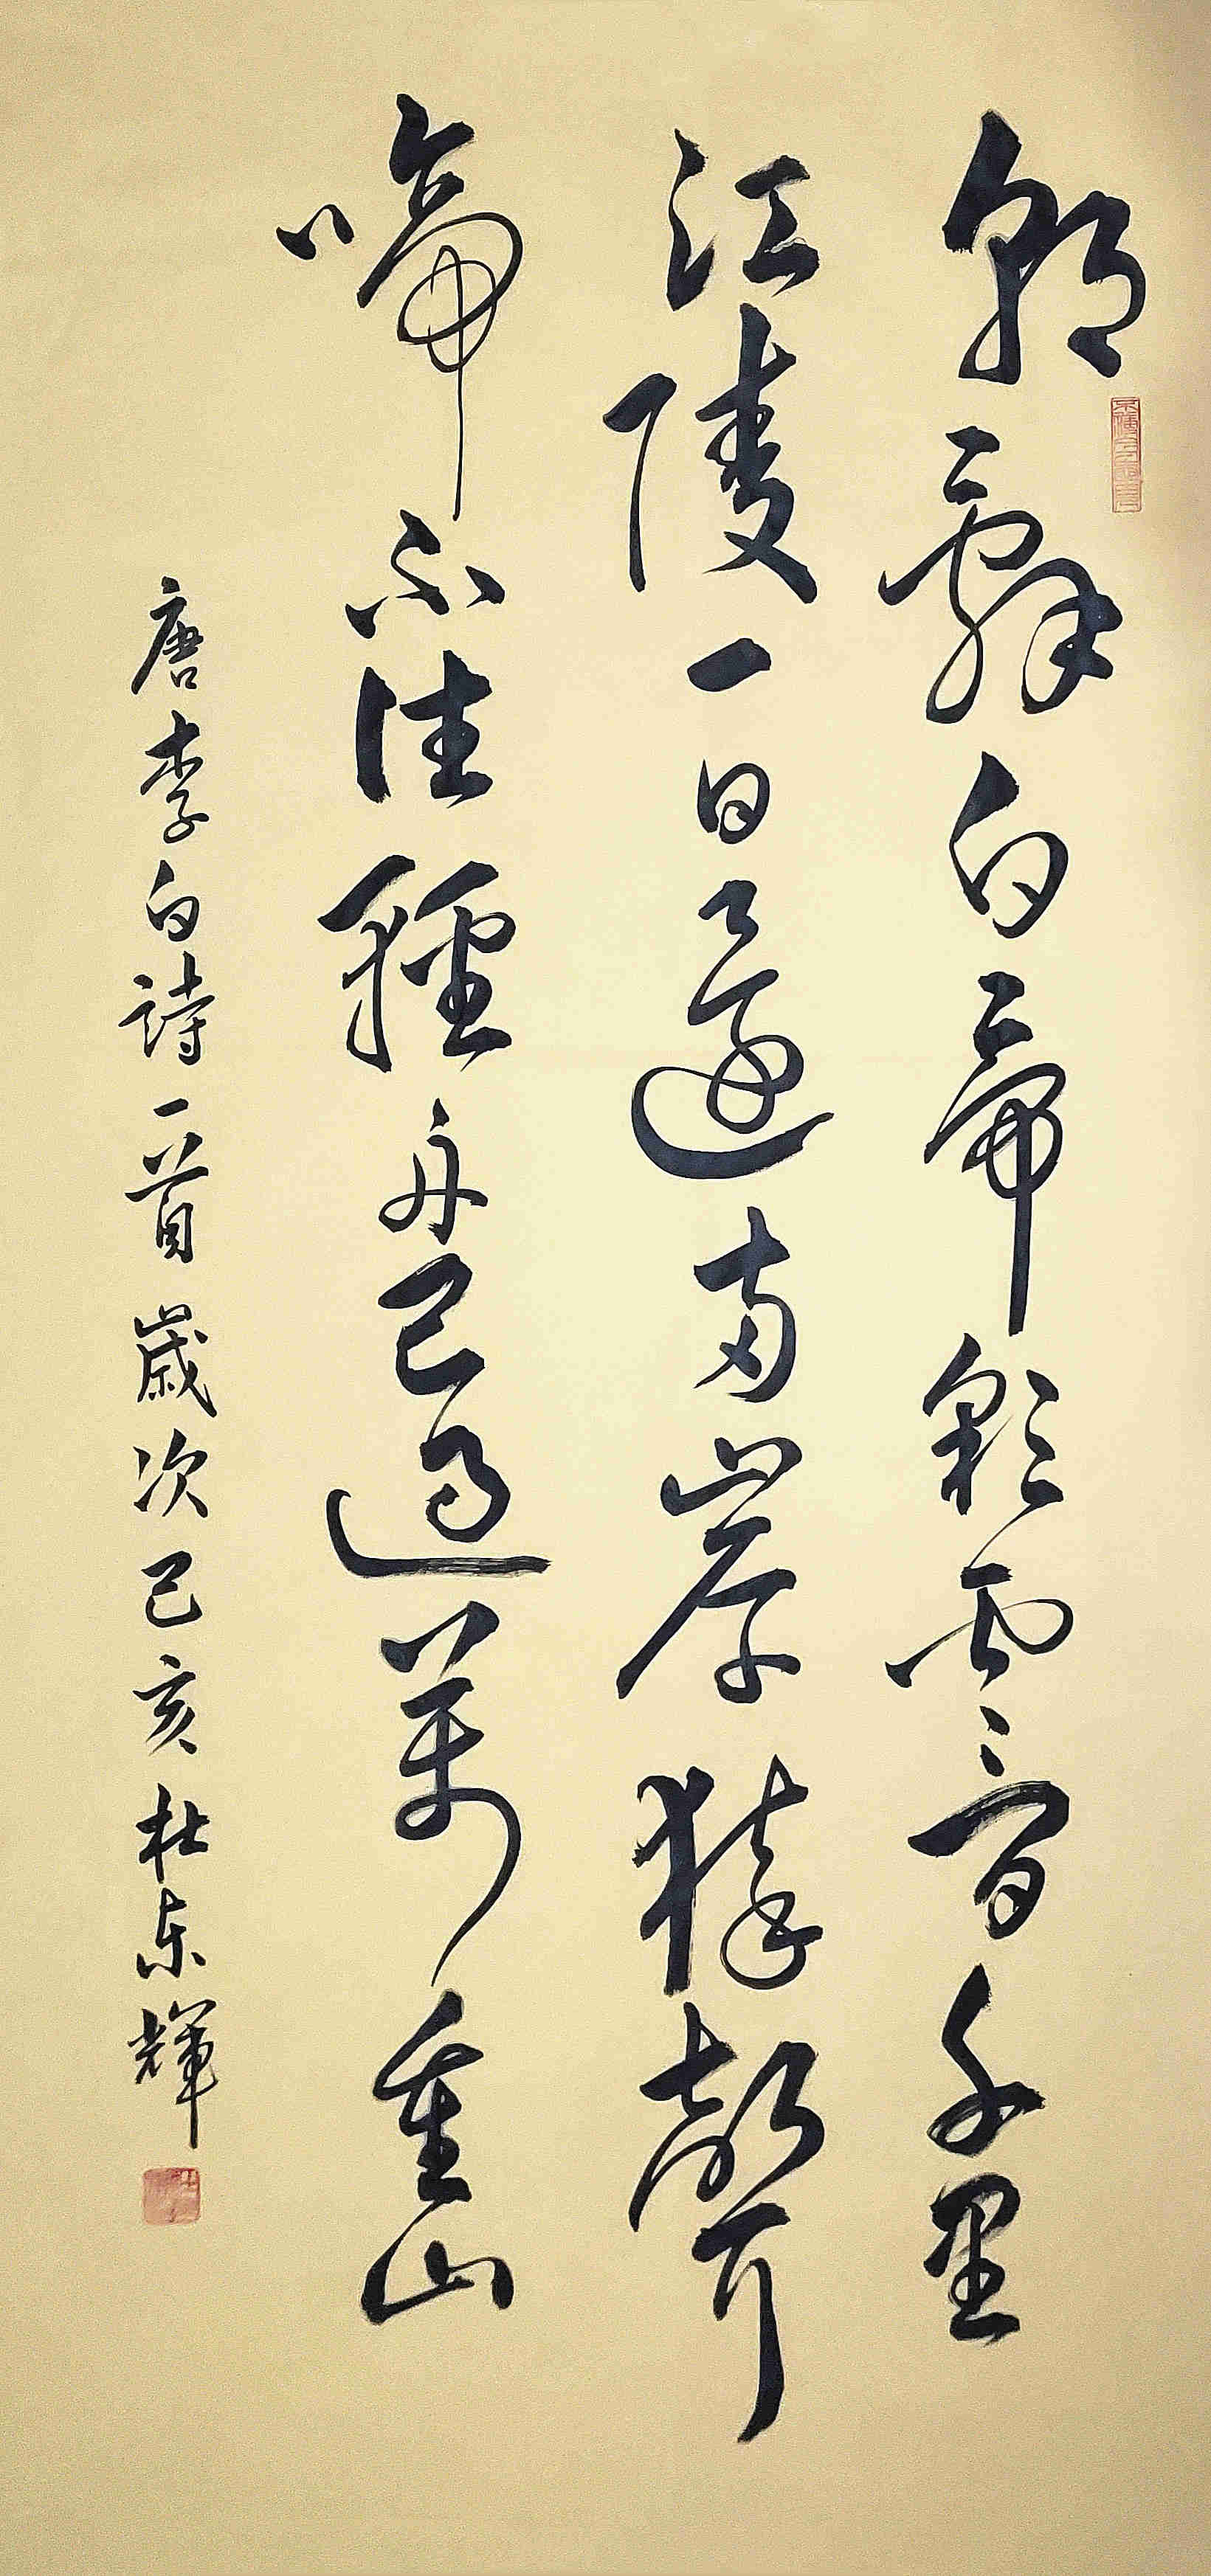 朝辭白帝彩雲間千里
江陵一日還兩岸猿聲
啼不住輕舟已過萬重山
唐李白詩一首歲次己亥杜東輝